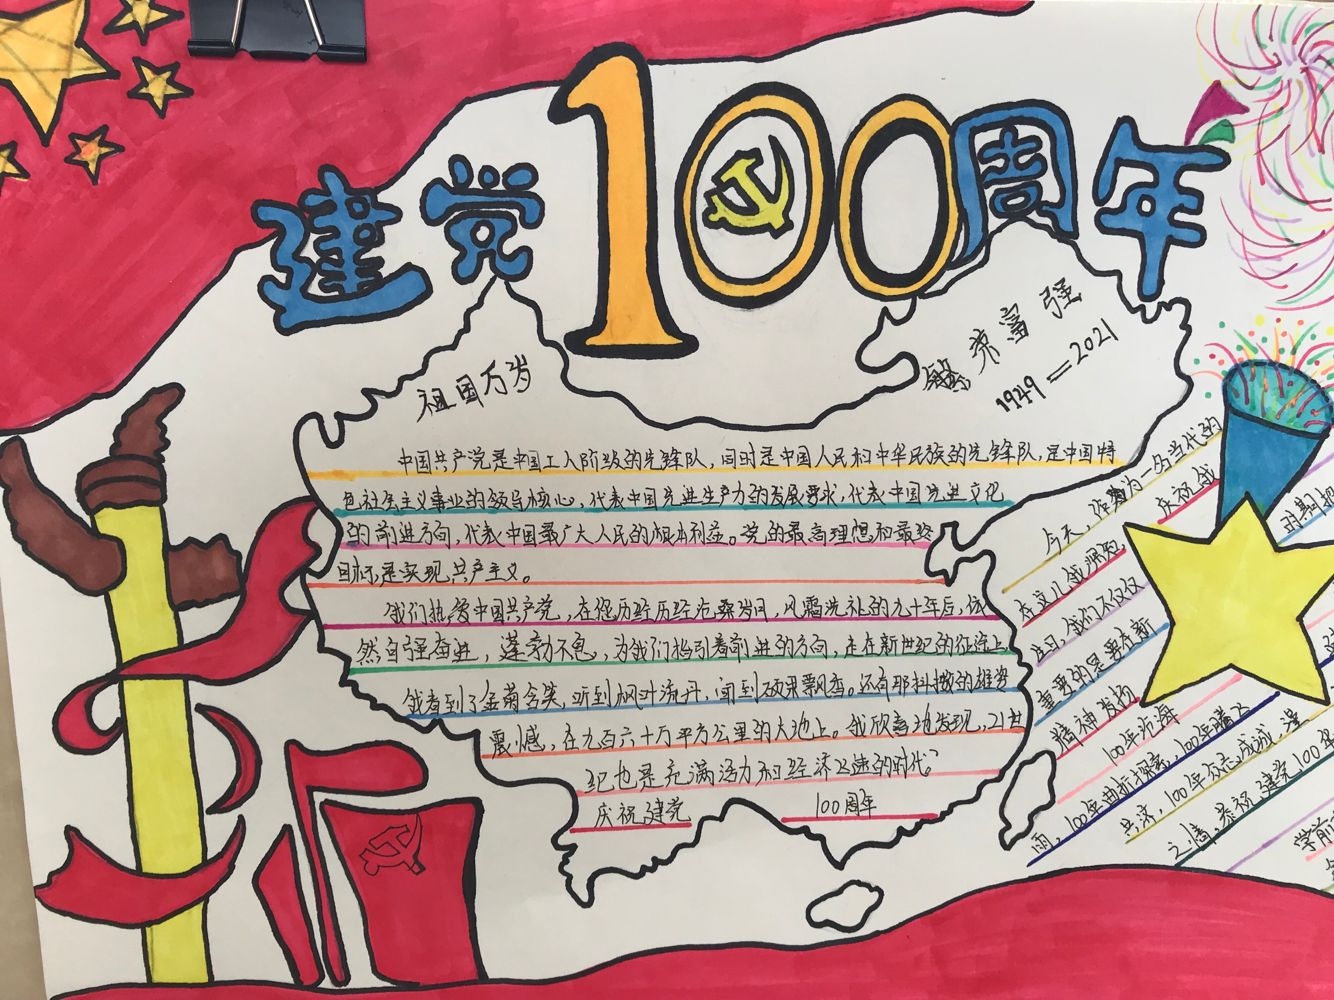 建党100周年
祖国万岁
繁荣富强
1949—2021
中国共产党是中国工人阶级的先锋队，同时是中国人民和中华民族的先锋队，是中国特
色社会主义事业的领导核心，代表中国先进生产力的发展要求，代表中国先进文化
的前进方向，代表中国最广大人民的根本利益。党的最高理想和最终
目标是实现共产主义。
我们热爱中国共产党，在您历经历经沧桑岁月，风霜洗礼的九十年后，依
然自强奋进，蓬勃不息，为我们指引着前进的方向，走在新世纪的征途上，
我看到了金菊含笑，听到枫叶流丹，闻到硕果飘香。还有那抖擞的雄姿
震憾，在九百六十万平方公里的大地上。我欣喜地发现，21世
纪也是充满活力和经济飞速的时代？
庆祝建党 100周年
今天，作为一名当代的
庆祝我
的期担
在这儿我
重要的是要在新
精神发扬
100年沧海
雨，100年曲折探索，100年
共济，100年众志成城，
之情，恭祝建党100年
学前